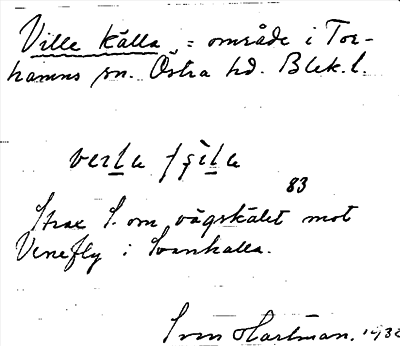 Ville källa, = område i Tor-
hamns sn. Östra hd. Blek. l.
83
Strax S. om vägskälet mot
Venefly i Svankalla.
Sven Hartman. 1932